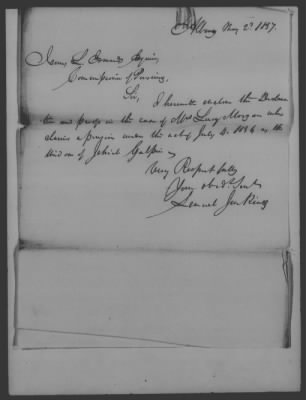 Albany May 2d 1837.
James L Edwards Esquire,
Commissioner of Pensions,
Sir,
I herewith enclose the Declara
tion and proofs in the case of Mrs Lucy Morgan who
claims a pension under the act of July 4. 1836 as the
widow of Jehiel
Very Respectfully
Your obedt Servt
Samuel Jenkins